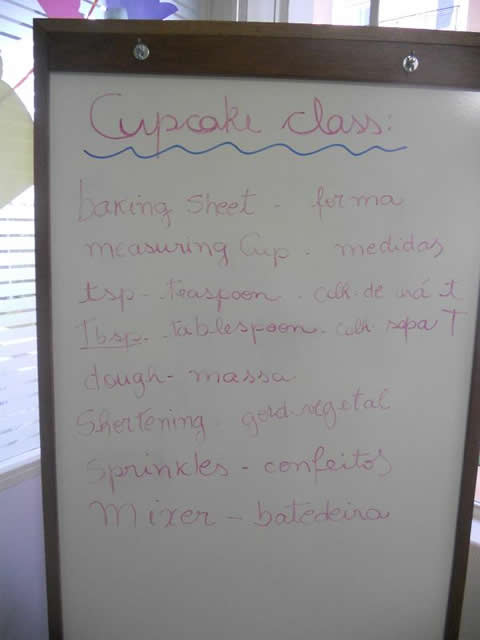 Cupcake class:
baking sheet - forma
measuring Cup - medidas
tsp - teaspoon - colh. de chá t
Tbsp - tablespoon - colh. sopa T
dough - massa
Shortening - gord. vegetal
Sprinkles - confeitos
Mixer - batedeira